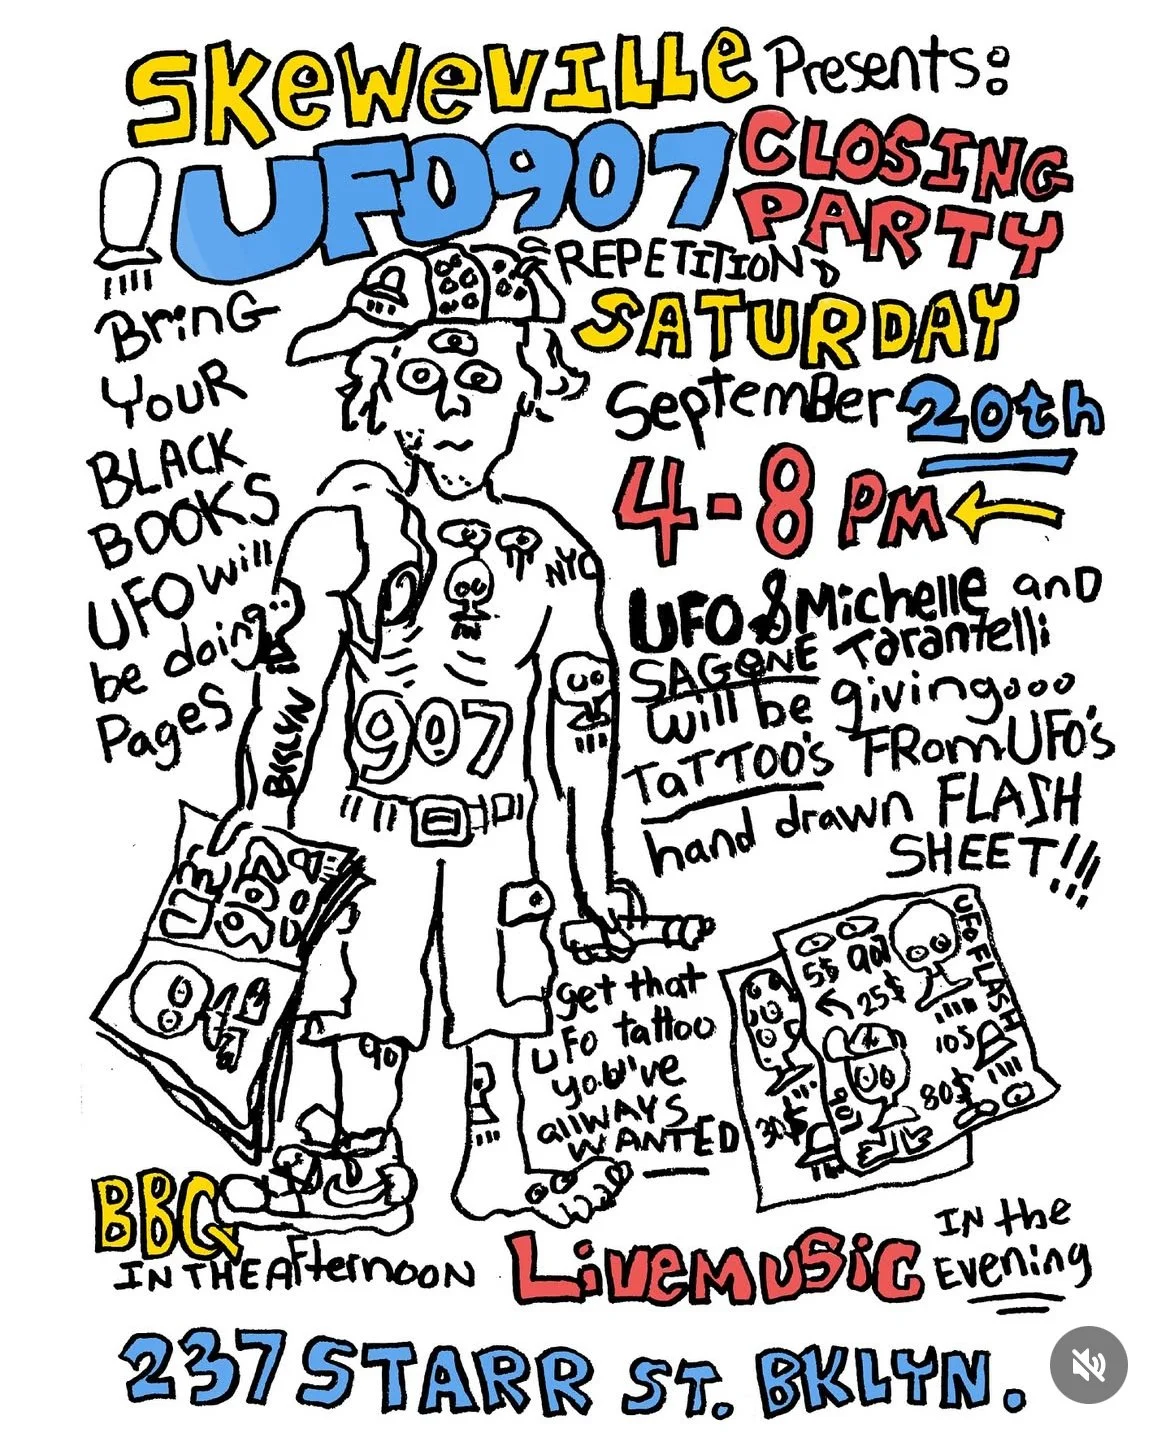 SKeWeVILLe Presents:
UFO907 CLOSING
PARTY
REPETITION
SATURDAY
September 20th
4-8 PM
Bring
YOUR
BLACK
BOOKS
UFO will
be doing
Pages
NYC
907
BRKLYN
UFO & Michelle and
SAGONE Tarantelli
will be givingooo
TaTTOO's FRom UFO's
hand drawn FLASH
SHEET!!!
get that
UFO tattoo
you've
allWAYS
WANTED
90
UFO FLASH
5$ 907
25$
10$
80$
907
30$
BBQ
IN THE Afternoon
LiveMUSiC
IN the
Evening
237 STARR ST. BKLYN.